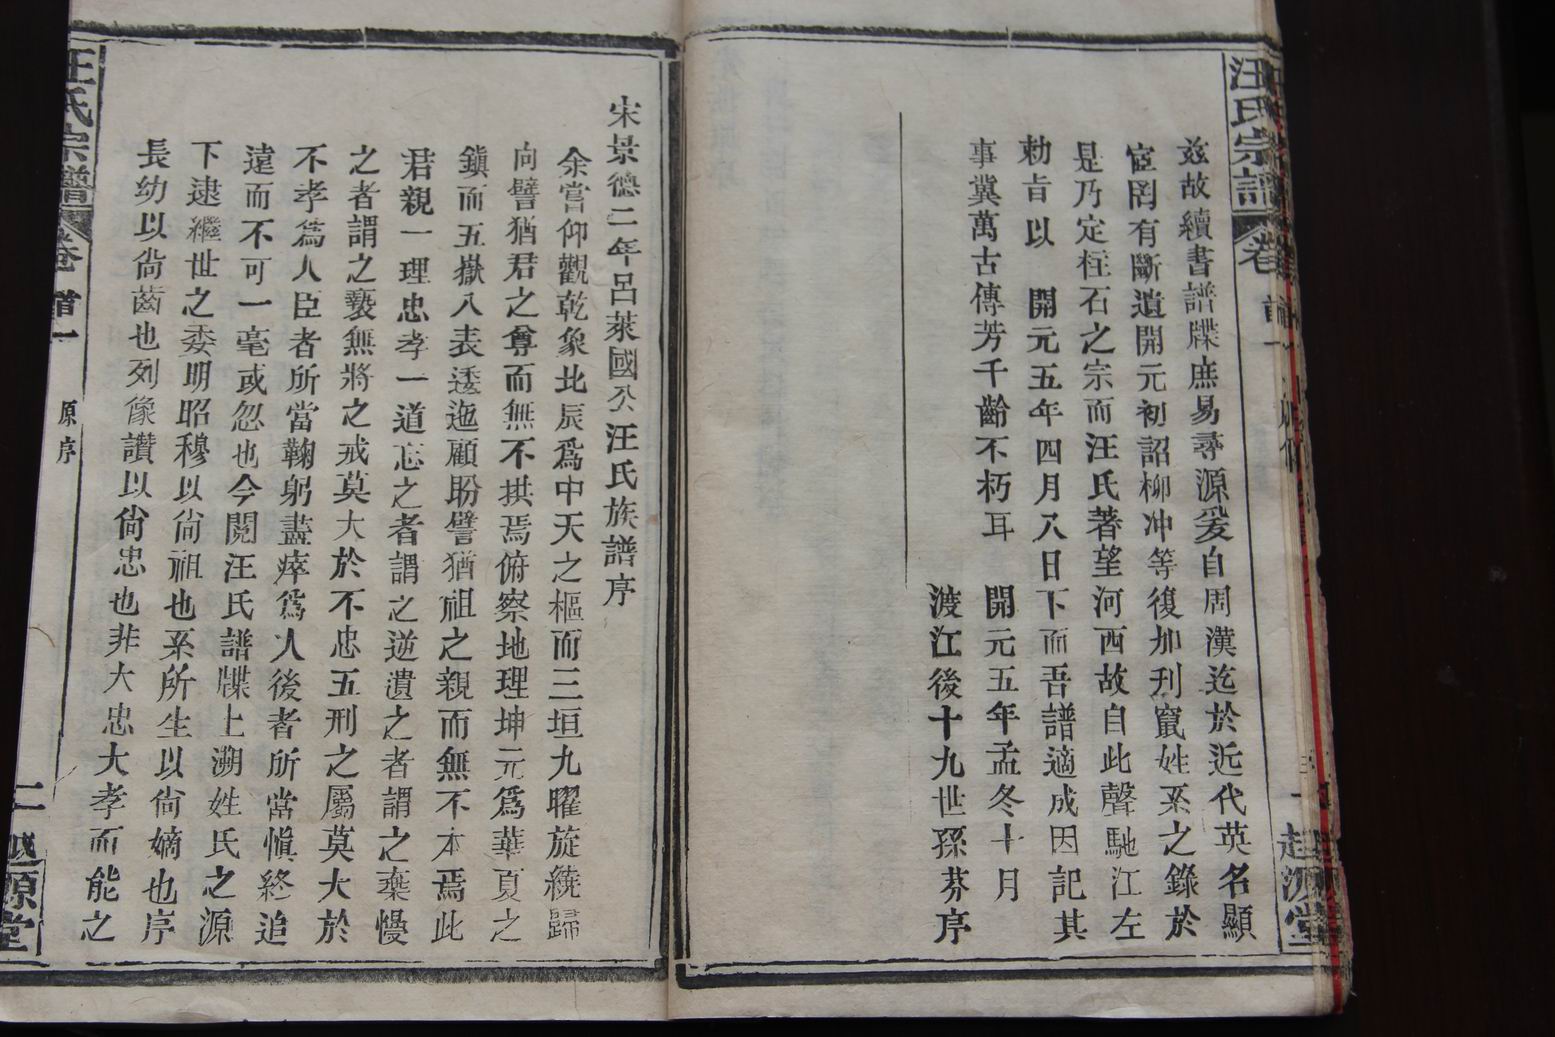 汪氏宗譜
卷
首
一
茲故續書譜牒庶易尋源爰自周漢迄於近代英名顯
宦罔有斷遺開元初詔柳冲等復加刋竄姓系之錄於
是乃定柱石之宗而汪氏著望河西故自此聲馳江左
勅旨以 開元五年四月八日下而吾譜適成因記其
事冀萬古傳芳千齡不朽耳 開元五年孟冬十月
渡江後十九世孫芬序
宋景德二年呂萊國公汪氏族譜序
余嘗仰觀乾象北辰爲中天之樞而三垣九曜旋繞歸
向譬猶君之尊而無不拱焉俯察地理坤元爲華夏之
鎮而五嶽八表逶迤顧盼譬猶祖之親而無不本焉此
君親一理忠孝一道忘之者謂之逆遺之者謂之棄慢
之者謂之褻無將之戒莫大於不忠五刑之屬莫大於
不孝爲人臣者所當鞠躬盡瘁爲人後者所當愼終追
遠而不可一毫或忽也今閱汪氏譜牒上溯姓氏之源
下逮繼世之委明昭穆以尙祖也系所生以尙嫡也序
長幼以尙齒也列像讚以尙忠也非大忠大孝而能之
汪氏宗譜
卷首一
原序
二
越源堂